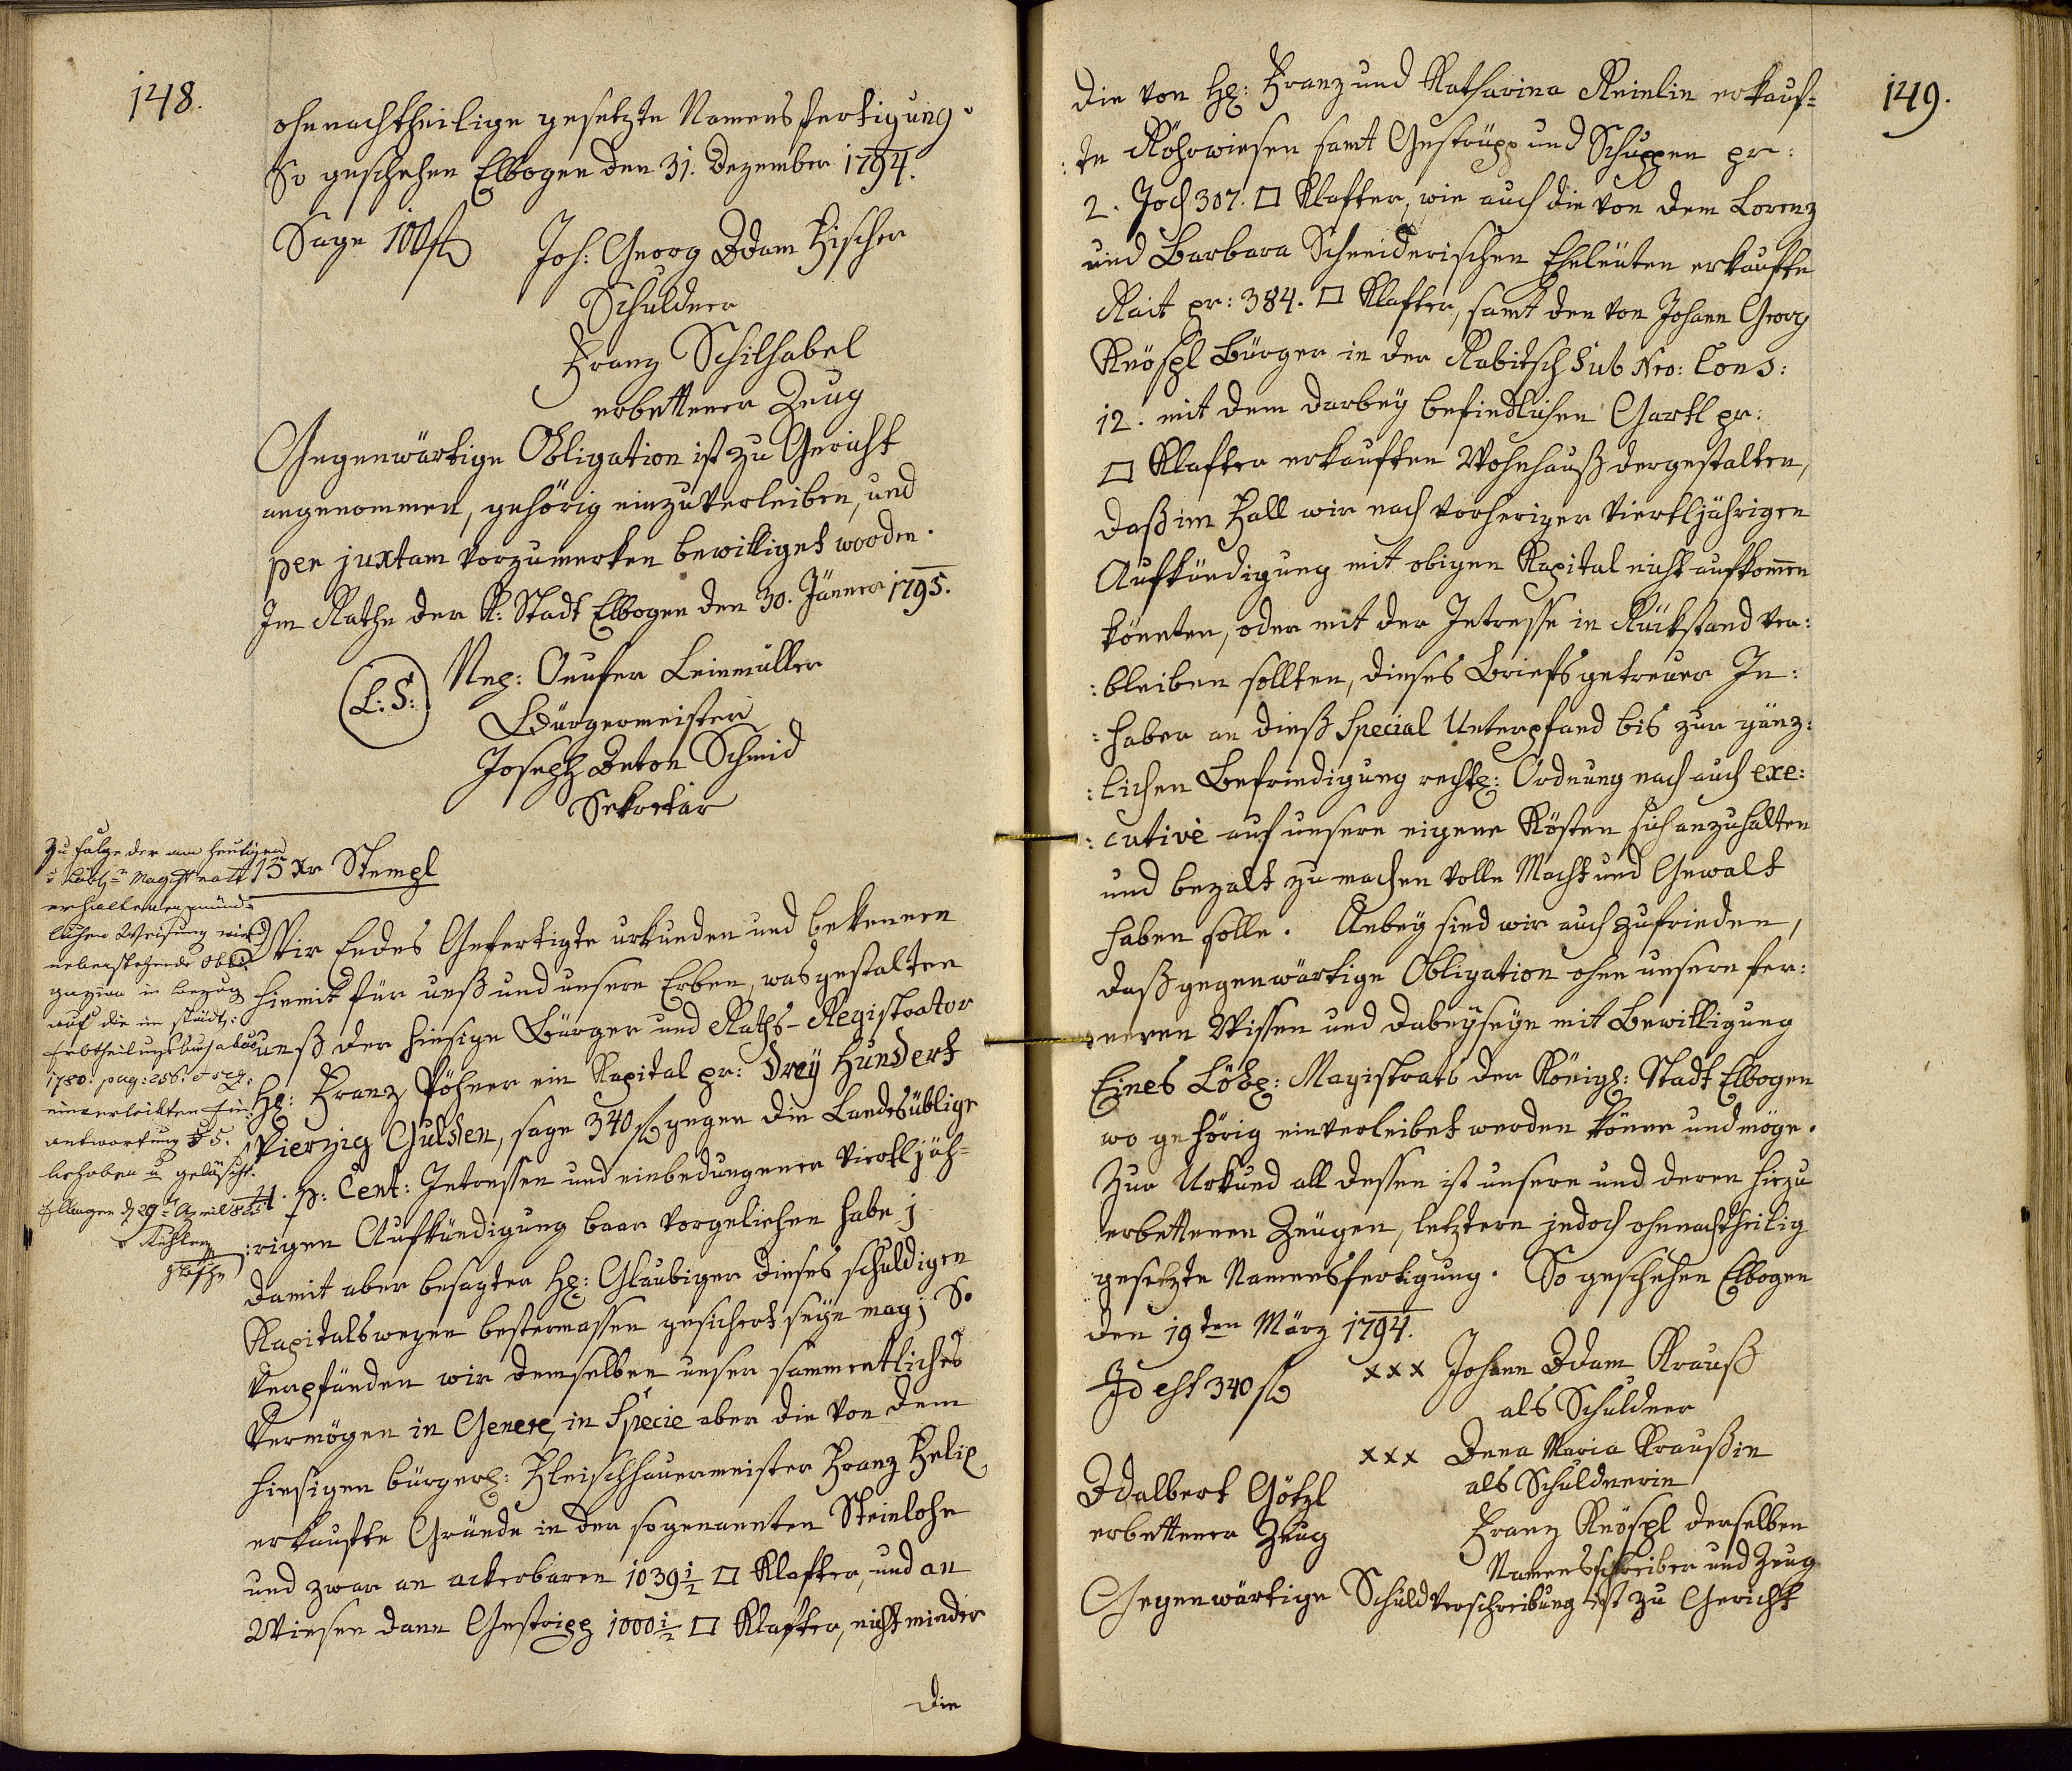 148.
ohnnachtheilige gesetzte Namensfertigung.
So geschehen Elbogen den 31. Dezember 1794.
Sage 100 f
Joh: Georg Adam Fischer
Schuldner
Franz Schilhabel
erbettener Zeug
Gegenwärtige Obligation ist zu Gericht
angenommen, gehörig einzuverleiben, und
per juxtam vorzumerken bewilliget worden.
Im Rathe der K: Stadt Elbogen den 30. Jänner 1795.
(L:S:)
Nep: Onufer Leinmüller
Bürgermeister
Joseph Anton Schmid
Sekretär
Zu folge der am heutigen
Löbl. Magistrate
erhaltenen münd-
lichen Weisung wird
nebenstehende Obli-
gazion in bezug
auf die im städt:
Erbtheilungsbuch
1780: pag: 256. et seq:
einverleibten Ein-
antwortung § 5.
behoben u gelöscht.
Ellbogen d 29t April
15 Xr Stempl
Wir Endes Gefertigte urkunden und bekennen
hiemit für unß und unsere Erben, was gestalten
unß der hiesige Bürger und Raths-Registrator
H: Franz Pöhner ein Kapital pr: Drey Hundert
Vierzig Gulden, sage 340 f gegen die Landesüblige
4. p: Cent: Intressen und einbedungener viertljäh-
:rigen Aufkündigung baar vorgeliehen habe;
Damit aber besagter H: Glaubiger dieses schuldigen
Kapitalswegen bestermassen gesichert seye mag; So
verpfänden wir demselben unser sammentliches
Vermögen in Genere, in Specie aber die von dem
hiesigen bürgerl: Fleischhauermeister Franz Helip
erkaufte Gründe in der sogenannten Steinlohe
und zwar an ackerbaren 1039 1/2 □ Klafter, und an
Wiesen dann Gestripp 1000 1/2 □ Klafter, nicht minder
die
149.
die von H: Franz und Katharina Reinlin erkauf-
:te Röhrwiesen samt Gestrüpp und Schuppen pr:
2. Joch 307. □ Klafter, wie auch die von dem Lorenz
und Barbara Schneiderischen Eheleüten erkaufte
Rait pr: 384. □ Klafter, samt den von Johann Georg
Knöspl Bürger in der Rabitsch Sub Nro: Cons:
12. mit dem darbey befindlichen Gartl pr:
□ Klafter erkauften Wohnhauß dergestalten,
daß im Fall wir nach vorheriger viertljährigen
Aufkündigung mit obigen Kapital nicht aufkomen
könnten, oder mit der Intresse in Rückstand ver:
:bleiben sollten, dieses Briefs getreuer In:
:haber an dieß Special Unterpfand bis zur gänz:
:lichen Befriedigung rechtl: Ordnung nach auch exe:
:cutivè auf unsere eigene Kösten sich anzuhalten
und bezalt zu machen volle Macht und Gewalt
haben solle. Anbey sind wir auch zufrieden,
daß gegenwärtige Obligation ohne unsern fer:
:neren Wissen und dabeyseyn mit Bewilligung
Eines Löbl: Magistrats der Königl: Stadt Elbogen
wo gehörig einverleibet werden könne und möge.
Zur Urkund all dessen ist unsere und deren hiezu
erbettenen Zeügen, letztern jedoch ohnnachtheilig
gesetzte Namensfertigung. So geschehen Elbogen
den 19ten März 1794.
Id est 340 f
xxx Johann Adam Krauß
als Schuldner
xxx Anna Maria Kraußin
als Schuldnerin
Adalbert Götzl
erbettener Zeug
Franz Knöspl derselben
Namensschreiber und Zeug
Gegenwärtige Schuldverschreibung ist zu Gericht